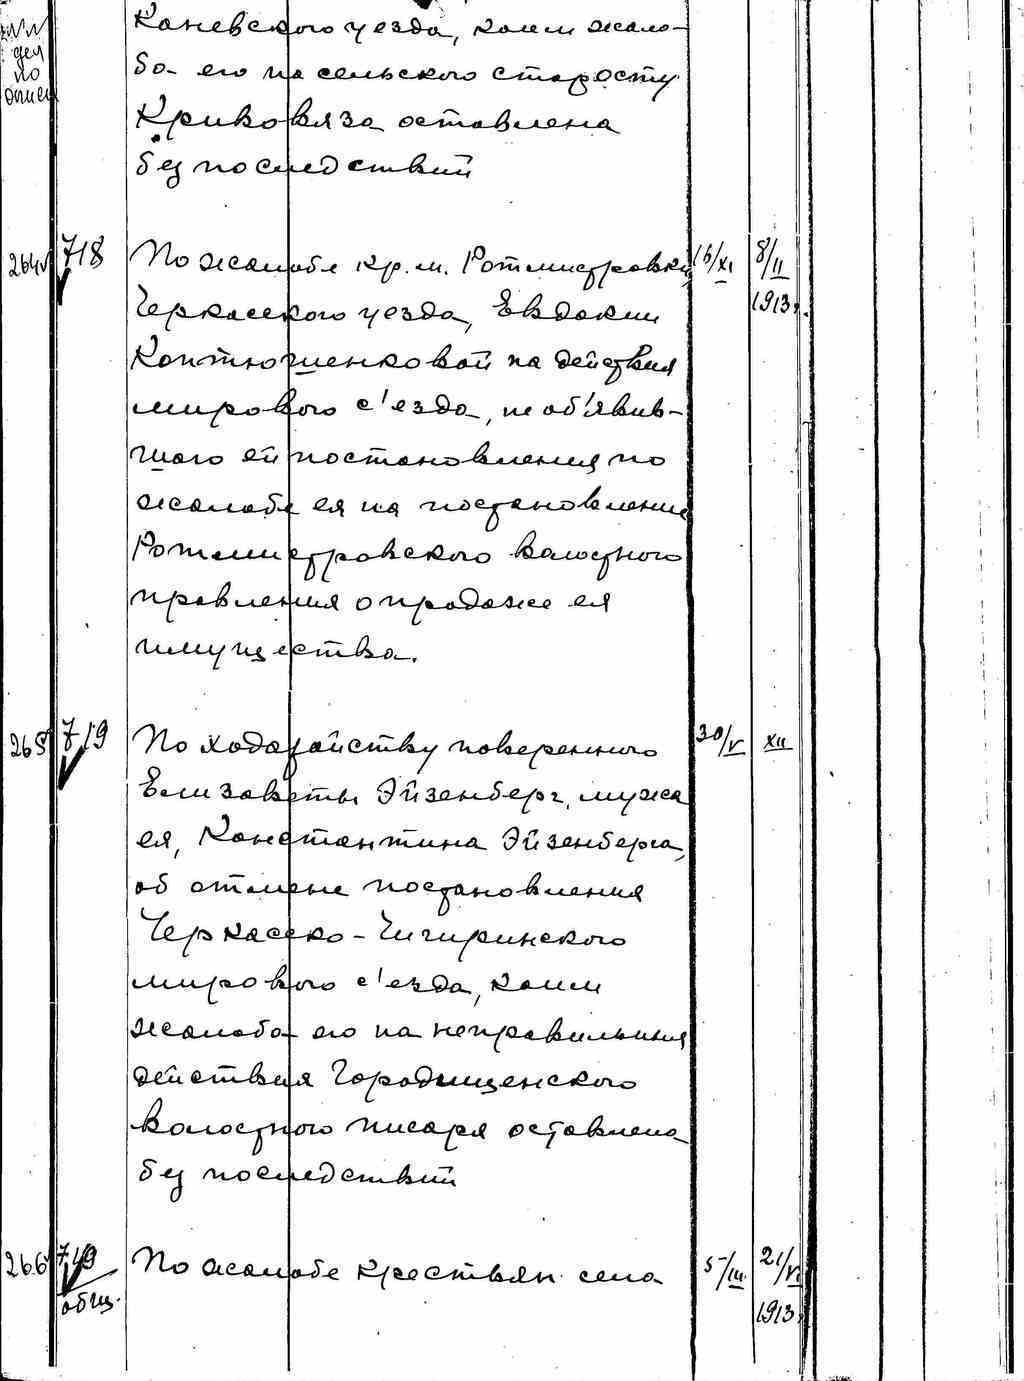 №№
дел
по
описи
Каневского уезда, коим жало-
ба его на сельского старосту
Кривовяза оставлена
без последствий
264 718 По жалобе кр. м. Ротмистровки, 16/XI 8/II
1913 г.
Черкасского уезда, Евдокии
Коптюшенковой на действия
мирового с'езда, не об'явив-
шаго ей постановления по
жалобе ея на постановление
Ротмистровского волостного
правления о продаже ея
имущества.
265 719 По ходатайству поверенного 30/V XII
Елизаветы Эйзенберг, мужа
ея, Константина Эйзенберга,
об отмене постановления
Черкасско-Чигиринского
мирового с'езда, коим
жалоба его на неправильныя
действия Городищенского
волостного писаря оставлена
без последствий
266 719 По жалобе крестьян села 5/III 21/V
общ. 1913 г.